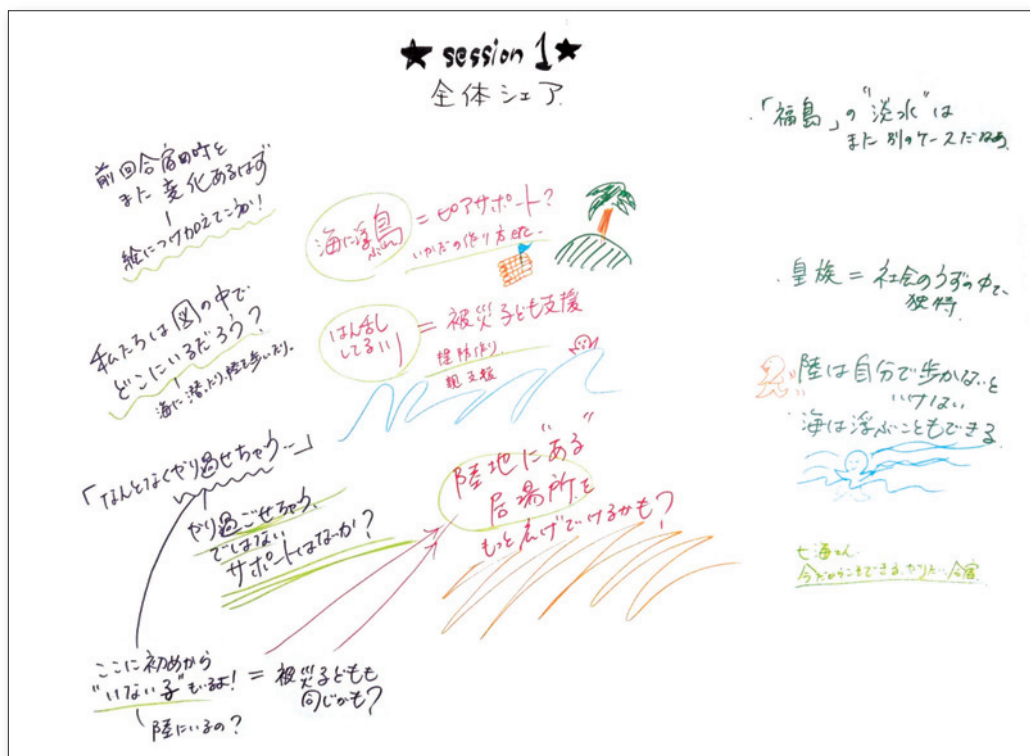 ★ session 1 ★
全体シェア
前回合宿の時と
また変化あるはず
絵につけかえてこうか!
私たちは図の中で
どこにいるだろう?
海に潜ったり、陸を歩いたり。
「なんとなくやり過せちゃう…」
やり過ごせちゃう、
ではない
サポートはなにか?
ここに初めから
"いない子"もいるよ!
陸にいるの?
= 被災子どもも
同じかも?
海に浮ぶ島
= ピアサポート?
いかだの作り方etc.
はん乱
してる川
= 被災子ども支援
堤防作り
親支援
陸地に"ある"
居場所を
もっと広げていけるかも?
・「福島」の"淡水"は
また別のケースだなあ。
・皇族 = 社会のうずの中で、
独特
陸は自分で歩かないと
いけない
海は浮ぶこともできる
七海さん
今だからこそできる、やりたい合宿